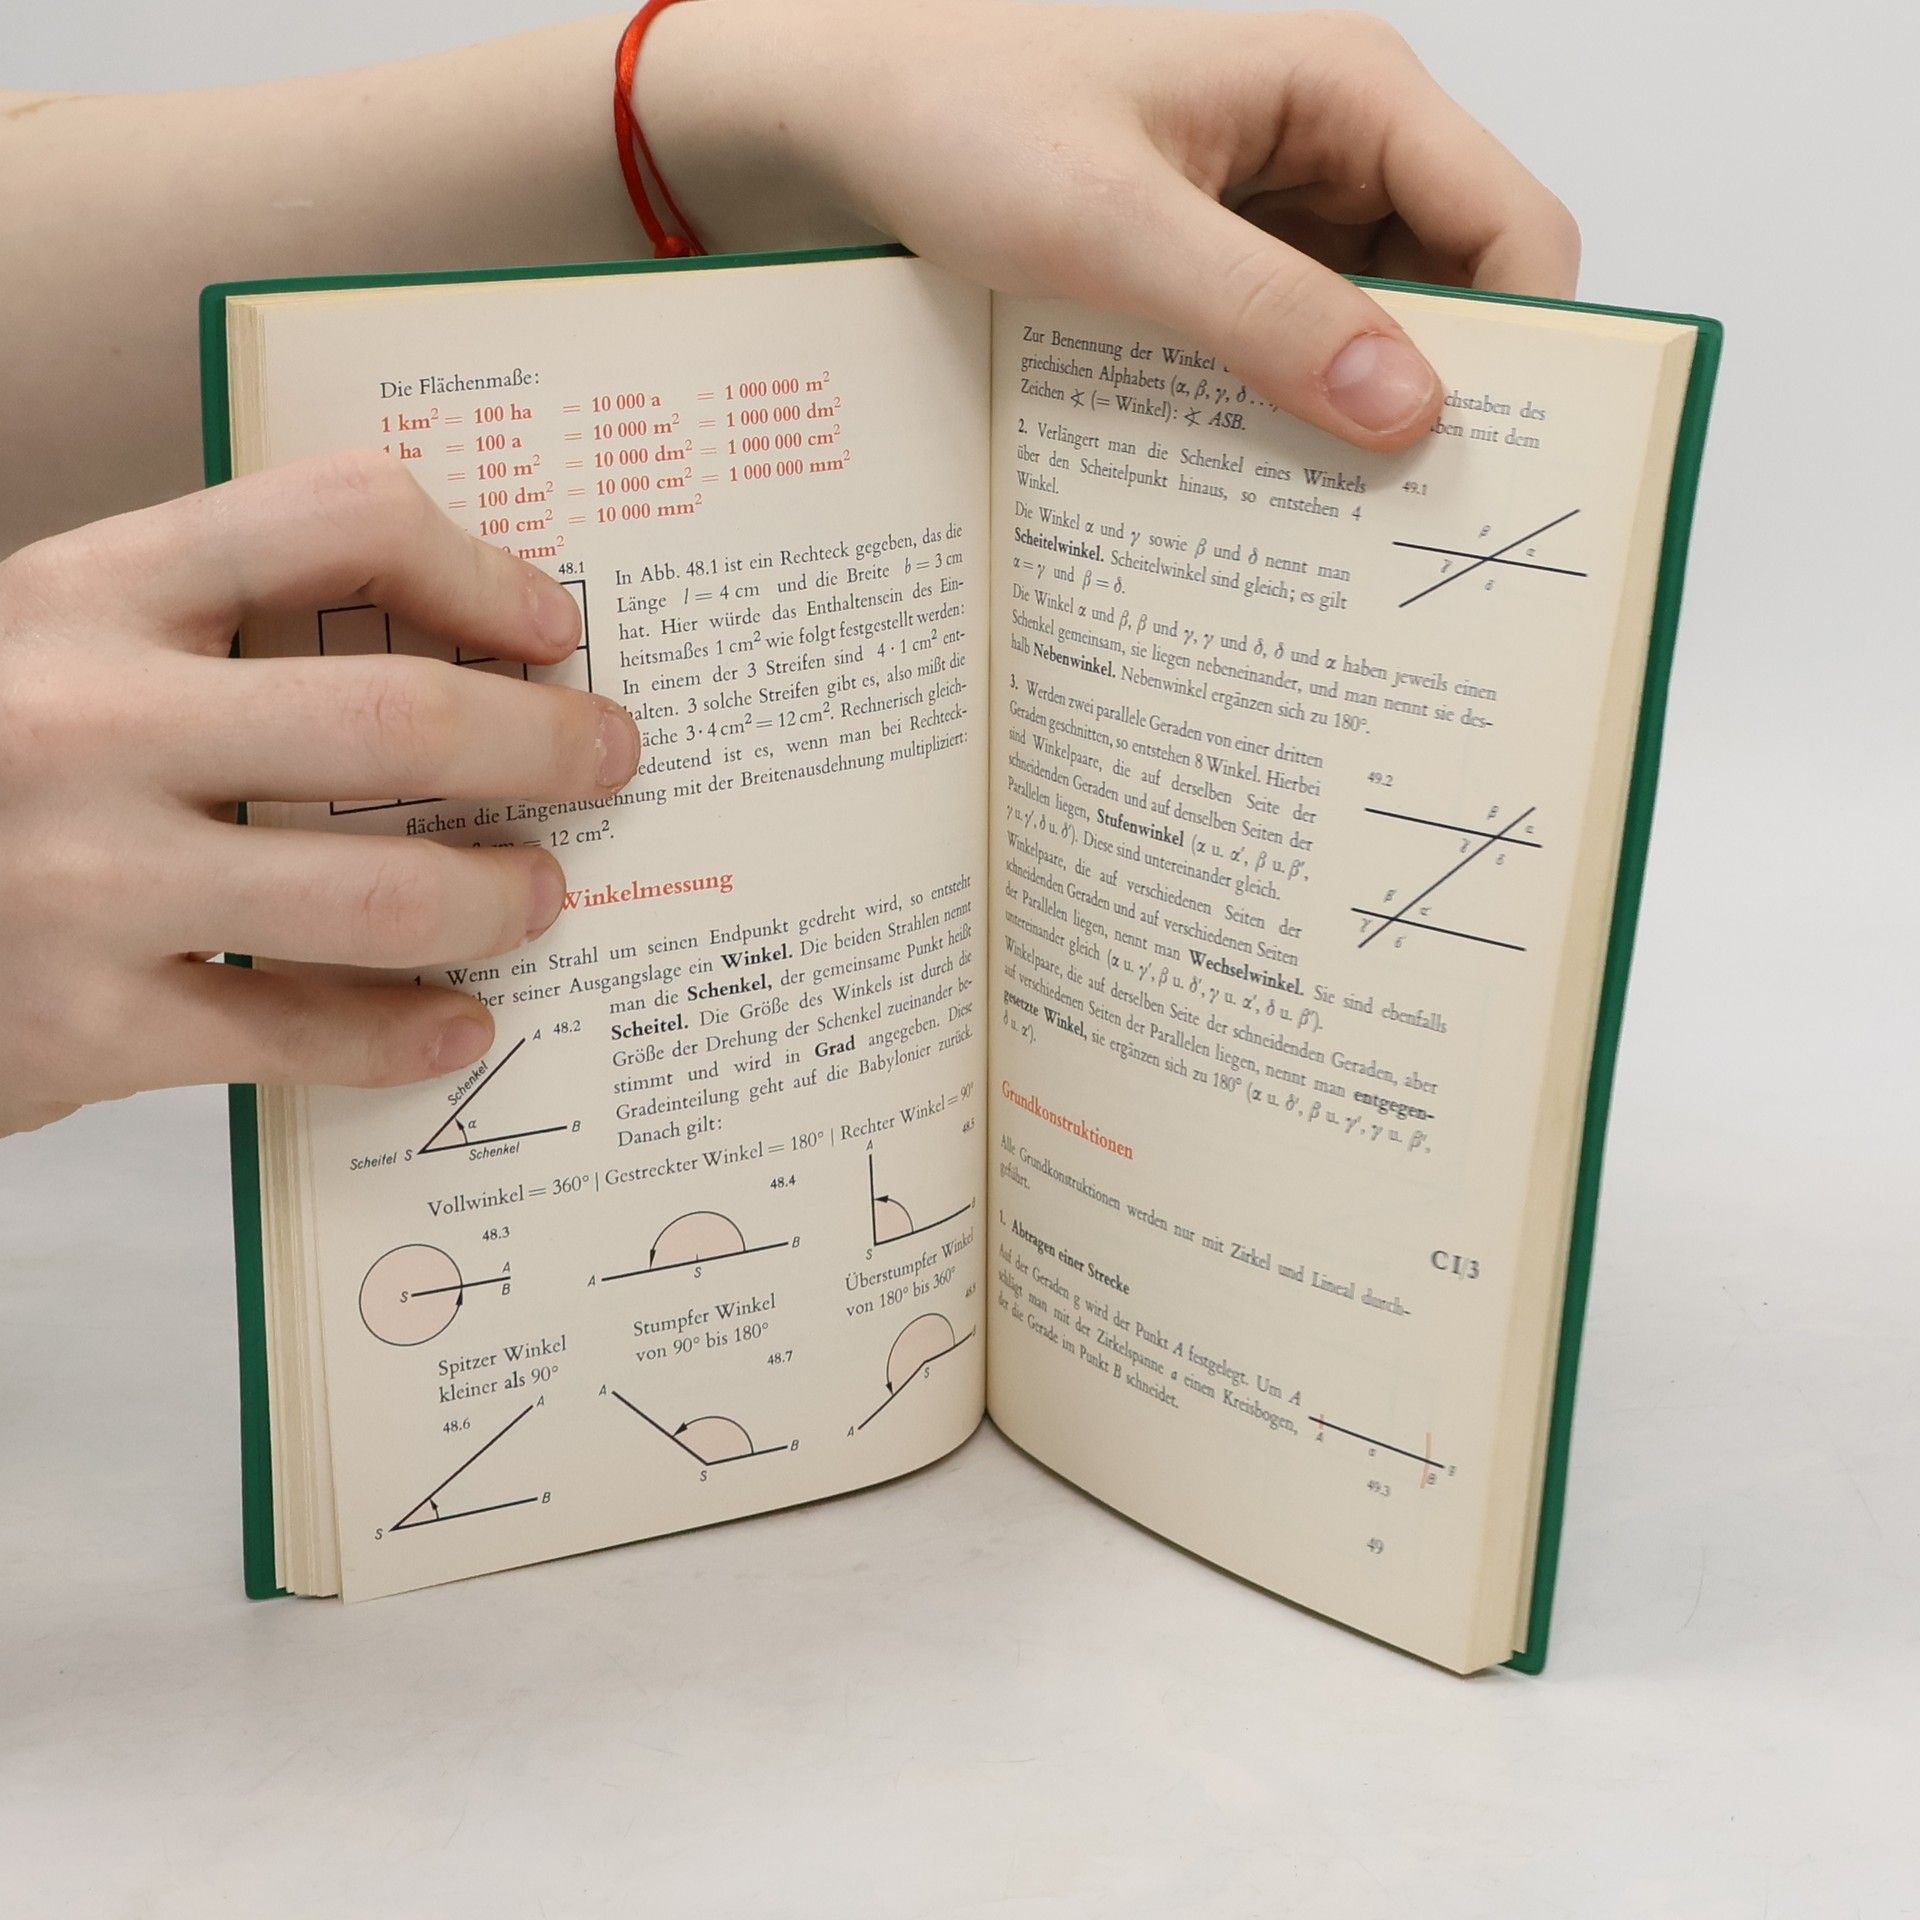 Die Flächenmaße:
1 km² = 100 ha = 10 000 a = 1 000 000 m²
1 ha = 100 a = 10 000 m² = 1 000 000 dm²
= 100 m² = 10 000 dm² = 1 000 000 cm²
= 100 dm² = 10 000 cm² = 1 000 000 mm²
100 cm² = 10 000 mm²
mm²
48.1
In Abb. 48.1 ist ein Rechteck gegeben, das die
Länge l = 4 cm und die Breite b = 3 cm
hat. Hier würde das Enthaltensein des Ein-
heitsmaßes 1 cm² wie folgt festgestellt werden:
In einem der 3 Streifen sind 4 · 1 cm² ent-
halten. 3 solche Streifen gibt es, also mißt die
äche 3 · 4 cm² = 12 cm². Rechnerisch gleich-
edeutend ist es, wenn man bei Rechteck-
flächen die Längenausdehnung mit der Breitenausdehnung multipliziert:
= 12 cm².
Winkelmessung
1. Wenn ein Strahl um seinen Endpunkt gedreht wird, so entsteht
ber seiner Ausgangslage ein Winkel. Die beiden Strahlen nennt
man die Schenkel, der gemeinsame Punkt heißt
Scheitel. Die Größe des Winkels ist durch die
Größe der Drehung der Schenkel zueinander be-
stimmt und wird in Grad angegeben. Diese
Gradeinteilung geht auf die Babylonier zurück.
Danach gilt:
A 48.2
Schenkel
α
B
Scheitel S
Schenkel
Vollwinkel = 360° | Gestreckter Winkel = 180° | Rechter Winkel = 90°
48.3
48.4
48.5
S A B
A S B
A S B
Spitzer Winkel
kleiner als 90°
Stumpfer Winkel
von 90° bis 180°
Überstumpfer Winkel
von 180° bis 360°
48.6
48.7
48.8
A S B
A S B
A S
Zur Benennung der Winkel chstaben des
griechischen Alphabets (α, β, γ, δ ..., ben mit dem
Zeichen ∢ (= Winkel): ∢ ASB.
2. Verlängert man die Schenkel eines Winkels
über den Scheitelpunkt hinaus, so entstehen 4
Winkel.
49.1
β α γ δ
Die Winkel α und γ sowie β und δ nennt man
Scheitelwinkel. Scheitelwinkel sind gleich; es gilt
α = γ und β = δ.
Die Winkel α und β, β und γ, γ und δ, δ und α haben jeweils einen
Schenkel gemeinsam, sie liegen nebeneinander, und man nennt sie des-
halb Nebenwinkel. Nebenwinkel ergänzen sich zu 180°.
3. Werden zwei parallele Geraden von einer dritten
Geraden geschnitten, so entstehen 8 Winkel. Hierbei
sind Winkelpaare, die auf derselben Seite der
schneidenden Geraden und auf denselben Seiten der
Parallelen liegen, Stufenwinkel (α u. α′, β u. β′,
γ u. γ′, δ u. δ′). Diese sind untereinander gleich.
Winkelpaare, die auf verschiedenen Seiten der
schneidenden Geraden und auf verschiedenen Seiten
der Parallelen liegen, nennt man Wechselwinkel. Sie sind ebenfalls
untereinander gleich (α u. γ′, β u. δ′, γ u. α′, δ u. β′).
Winkelpaare, die auf derselben Seite der schneidenden Geraden, aber
auf verschiedenen Seiten der Parallelen liegen, nennt man entgegen-
gesetzte Winkel, sie ergänzen sich zu 180° (α u. δ′, β u. γ′, γ u. β′,
δ u. α′).
49.2
β α γ δ
Grundkonstruktionen
Alle Grundkonstruktionen werden nur mit Zirkel und Lineal durch-
geführt.
C I/3
1. Abtragen einer Strecke
Auf der Geraden g wird der Punkt A festgelegt. Um A
schlägt man mit der Zirkelspanne a einen Kreisbogen,
der die Gerade im Punkt B schneidet.
A a B g
49.3
49